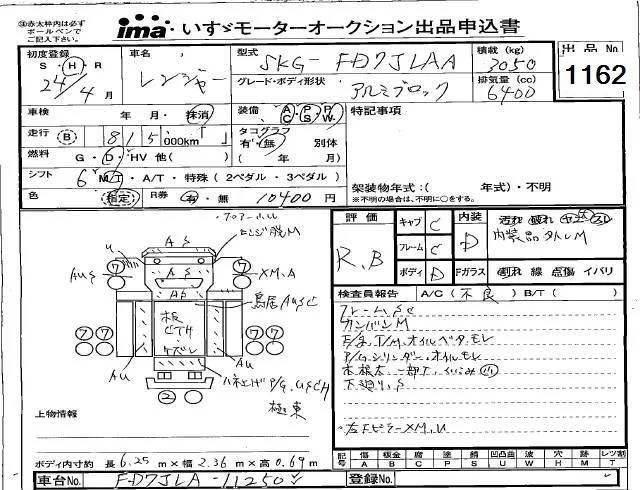 ※赤太枠内は必ず
ボールペンで
ご記入下さい。
ima いすゞモーターオークション出品申込書
初度登録
S・H・R
24/4月
車名
レンジャー
型式
SKG- FD7JLAA
グレード・ボディ形状
アルミブロック
積載(kg)
3050
排気量(cc)
6400
出品No.
1162
車検 年・月・抹消
装備 AC・PS・PW
特記事項
走行 B 815,000km「 」
タコグラフ
有・無 別体
( 年 月)
燃料 G・D・HV 他( )
シフト 6 MT・A/T・特殊(2ペダル・3ペダル)
色 (指定) R券 有・無 10400円
架装物年式:( 年式)・不明
※不明の場合は、不明に○をする。
評価
R.B
キャブ C
フレーム C
ボディ D
内装 D
汚れ 破れ
内装品外しM
Fガラス 割れ 線 点傷 イバリ
検査員報告 A/C(不良) B/T( )
フレームSC
カンバンM
E/g.T/M.オイルベタ.モレ
P/Gシリンダー.オイルモレ
下廻り.S
左FピラーXM,U
ヒンジ脱M
U
AS
AUS
XM.A
AS
AS
鳥居AUSC
板
CTH
ケズレ
AU
AU
ハネ上ゲP/G.USCH
極東
⑦
⑦
⑦⑦
⑦⑦
②
上物情報
ボディ内寸約 長6.25m×幅2.36m×高0.69m
記号 傷A 板金B 腐C 塗P 錆S 凹凸曲U 波W 穴H 跡X 脱M レツ割T
車台No. FD7JLA-11250
登録No.